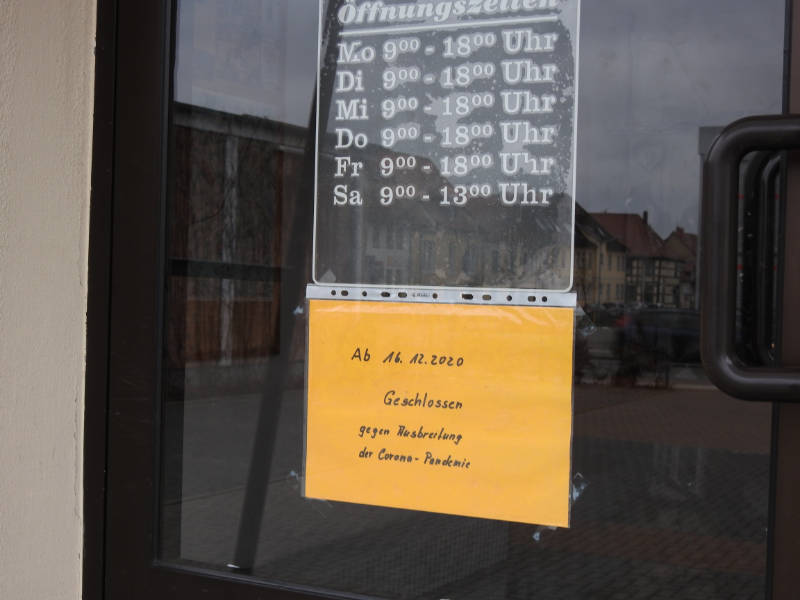 Öffnungszeiten
Mo 9⁰⁰ - 18⁰⁰ Uhr
Di 9⁰⁰ - 18⁰⁰ Uhr
Mi 9⁰⁰ - 18⁰⁰ Uhr
Do 9⁰⁰ - 18⁰⁰ Uhr
Fr 9⁰⁰ - 18⁰⁰ Uhr
Sa 9⁰⁰ - 13⁰⁰ Uhr
Ab 16.12.2020
Geschlossen
gegen Ausbreitung
der Corona-Pandemie